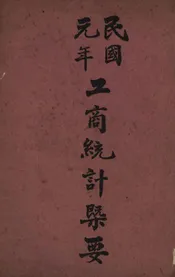 民國
元年
工商統計槩要